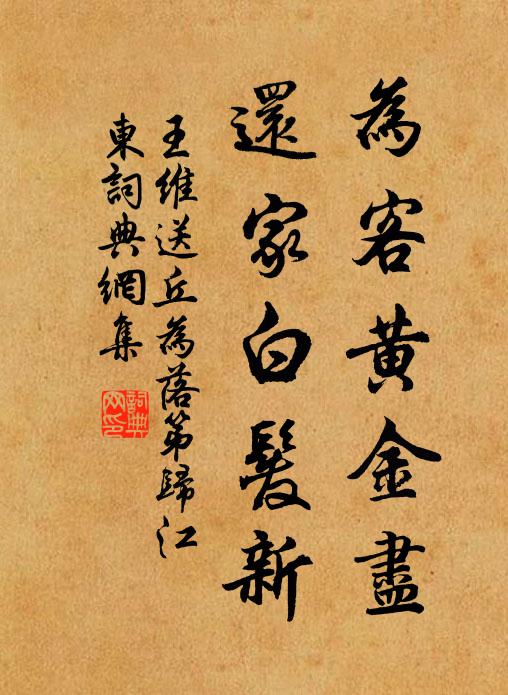 為客黃金盡
還家白髮新
王維送丘為落第歸江
東詞典網集
詞典
网印